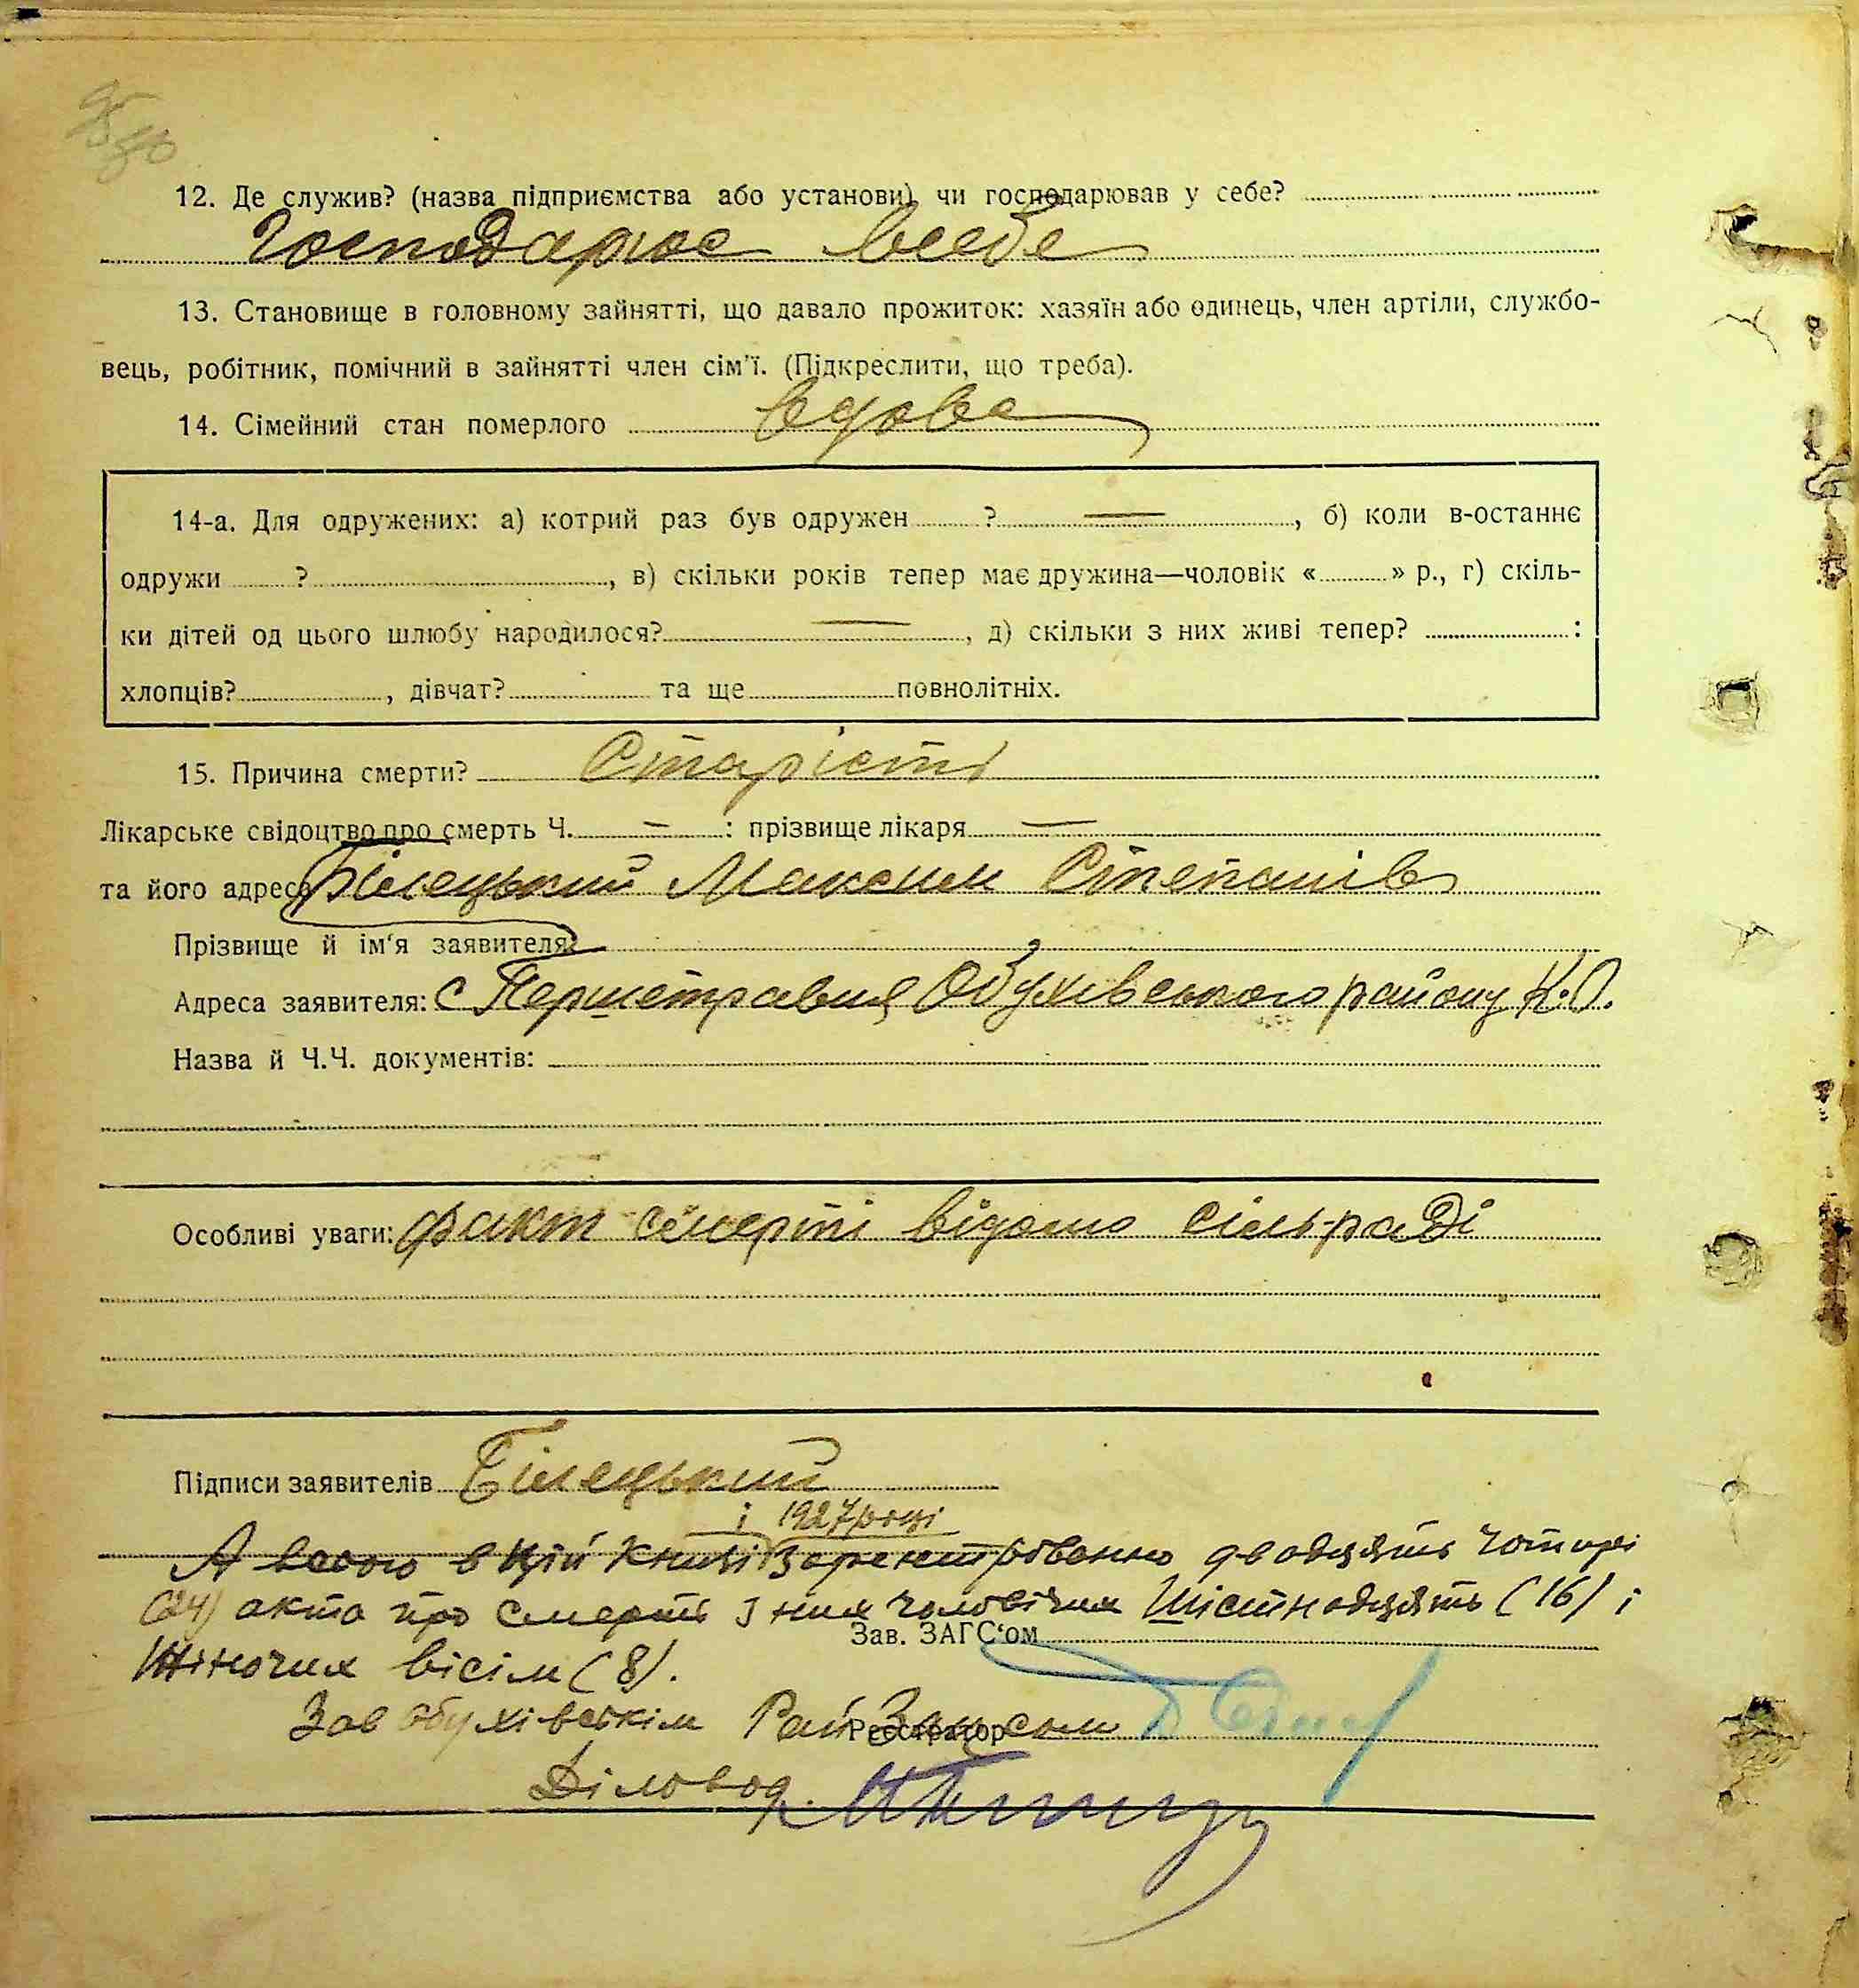 12. Де служив? (назва підприємства або установи) чи господарював у себе?
Господарює
13. Становище в головному зайнятті, що давало прожиток: хазяїн або одинець, член артіли, службо-
вець, робітник, помічний в зайнятті член сім'ї. (Підкреслити, що треба).
14. Сімейний стан померлого вдова
14-а. Для одружених: а) котрий раз був одружен ? —, б) коли в-останнє
одружи ?, в) скільки років тепер має дружина—чоловік « » р., г) скіль-
ки дітей од цього шлюбу народилося? —, д) скільки з них живі тепер? :
хлопців?, дівчат? та ще повнолітніх.
15. Причина смерти? Старість
Лікарське свідоцтво про смерть Ч. — : прізвище лікаря —
та його адреса Білецький Максим Степанів
Прізвище й ім'я заявителя:
Адреса заявителя: с Обухівського району К.О.
Назва й Ч.Ч. документів:
Особливі уваги: факт смерті відомо сільраді
Підписи заявителів Білецький
і 1927 році
А всього в цій книзі зареєстрованно двадцять чотирі
(24) акта про смерть з них чоловічих Шістнадцять (16) і
Зав. ЗАГС'ом
Жіночих вісім (8).
Зав Обухівським Рай Загсом
Реєстратор
Діловод.